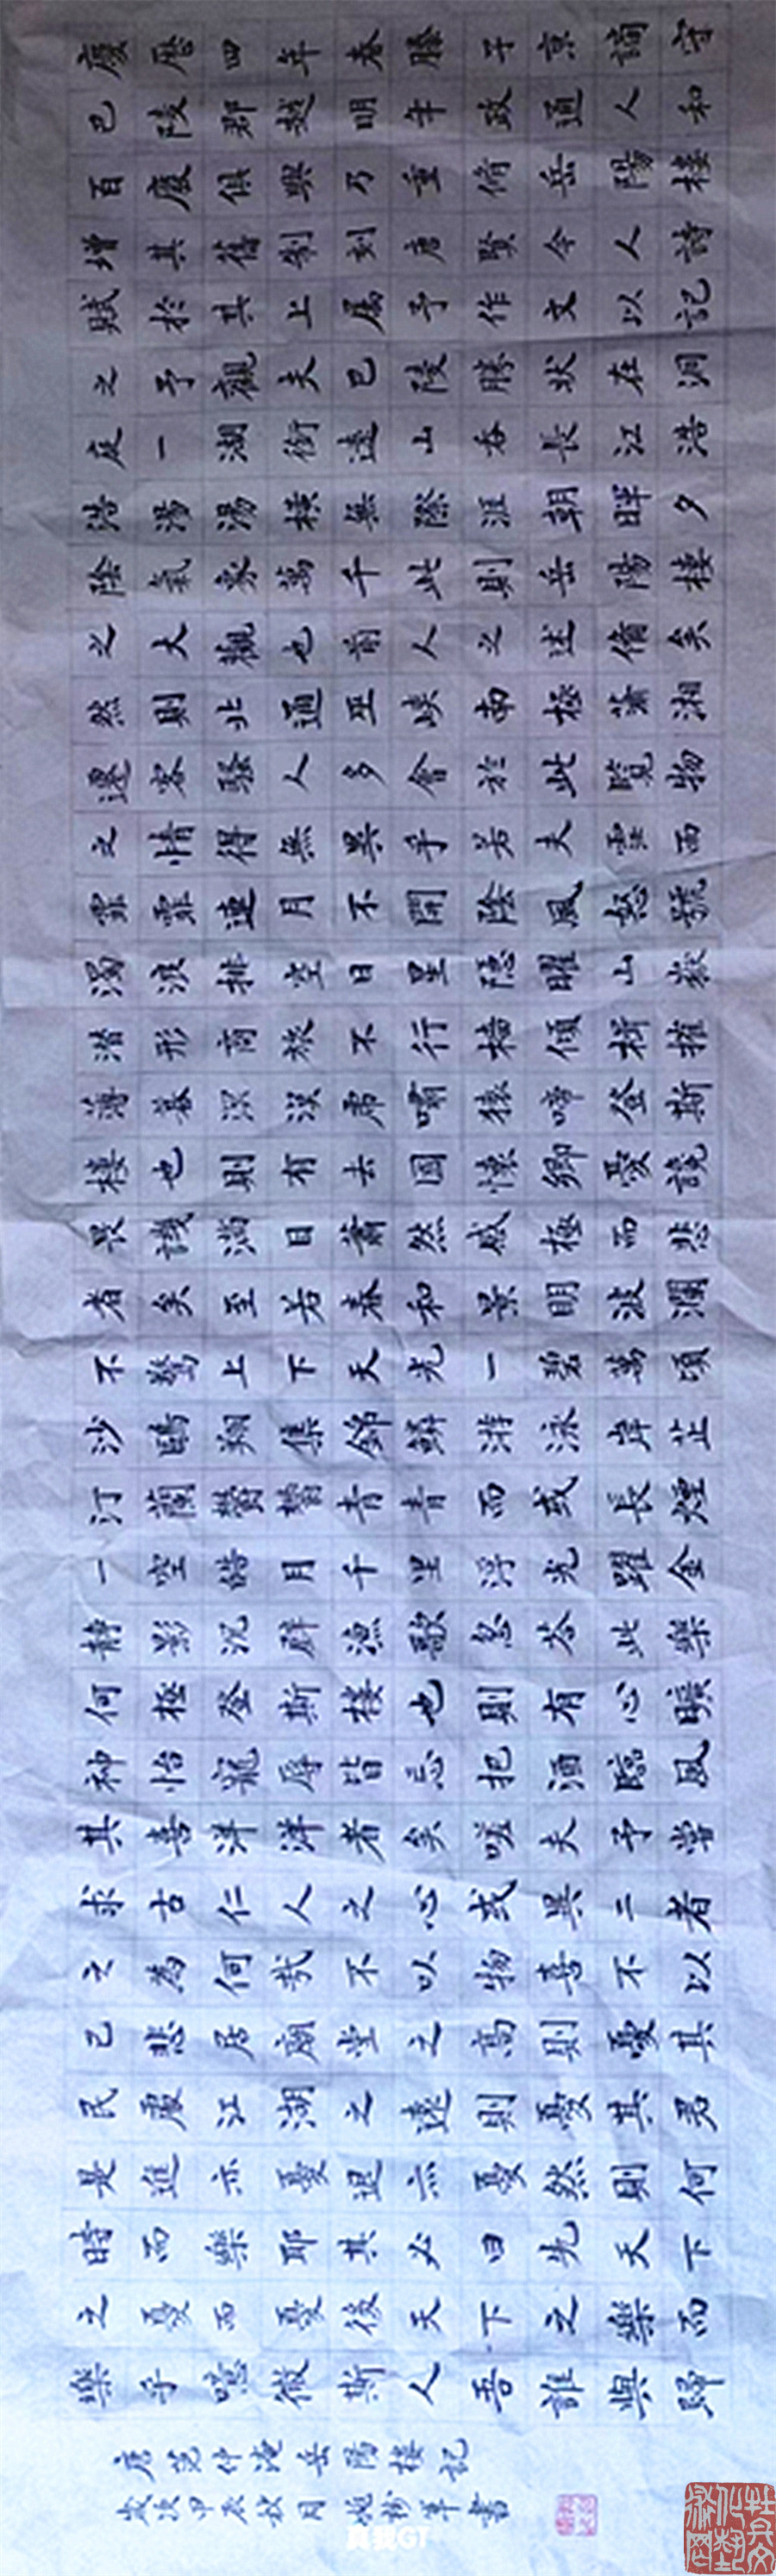 慶歷四年春滕子京謫守
巴陵郡越明年政通人和
百廢俱興乃重脩岳陽樓
增其舊制刻唐賢今人詩
賦於其上屬予作文以記
之予觀夫巴陵勝狀在洞
庭一湖銜遠山吞長江浩
浩湯湯橫無際涯朝暉夕
陰氣象萬千此則岳陽樓
之大觀也前人之述備矣
然則北通巫峽南極瀟湘
遷客騷人多會於此覽物
之情得無異乎若夫霪雨
霏霏連月不開陰風怒號
濁浪排空日星隱曜山嶽
潛形商旅不行檣傾楫摧
薄暮冥冥虎嘯猿啼登斯
樓也則有去國懷鄉憂讒
畏譏滿目蕭然感極而悲
者矣至若春和景明波瀾
不驚上下天光一碧萬頃
沙鷗翔集錦鱗游泳岸芷
汀蘭鬱鬱青青而或長煙
一空皓月千里浮光躍金
靜影沉璧漁歌忽答此樂
何極登斯樓也則有心曠
神怡寵辱皆忘把酒臨風
其喜洋洋者矣嗟夫予嘗
求古仁人之心或異二者
之為何哉不以物喜不以
己悲居廟堂之高則憂其
民處江湖之遠則憂其君
是進亦憂退亦憂然則何
時而樂耶其必曰先天下
之憂而憂後天下之樂而
樂乎噫微斯人吾誰與歸
唐范仲淹岳陽樓記
歲次甲辰秋月 書
真我GT